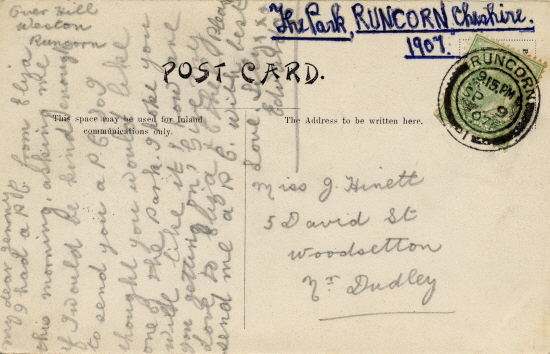 The Park, RUNCORN, Cheshire.
1907.
Over Hill
Weston
Runcorn
POST CARD.
This space may be used for Inland
communications only.
The Address to be written here.
RUNCORN
9.15 PM
My dear Jenny
I had a P.C. from Eliza
this morning, asking me
if I would be kind enough
to send you a P.C. Jog
thought you would like
one of the Park. I hope you
will like it & how are
you getting on, give my
love to Eliza & tell
send me a P.C. with best
love from
Miss J. Hinett
5 David St
Woodsetton
Nr Dudley